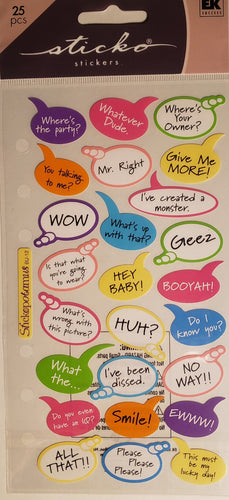 25
pcs
sticko®
stickers™
EK
SUCCESS
Where's
the party?
Whatever
Dude.
Where's
Your
Owner?
You talking
to me?
Mr. Right
Give Me
MORE!
I've created a
monster.
WOW
What's up
with that?
Geez
Is that what
you're going
to wear?
HEY
BABY!
BOOYAH!
Stickopotamus
What's
wrong with
this picture?
HUH?
Do I
know you?
What
the...
I've been
dissed.
NO
WAY!!
Do you even
have an IQ?
Smile!
EWWW!
ALL
THAT!!
Please
Please
Please!
This must
be my
lucky day!